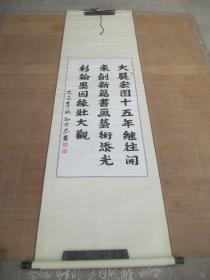 大展宏图十五年继往开
来创新篇书画艺术添光
彩翰墨因缘壮大观